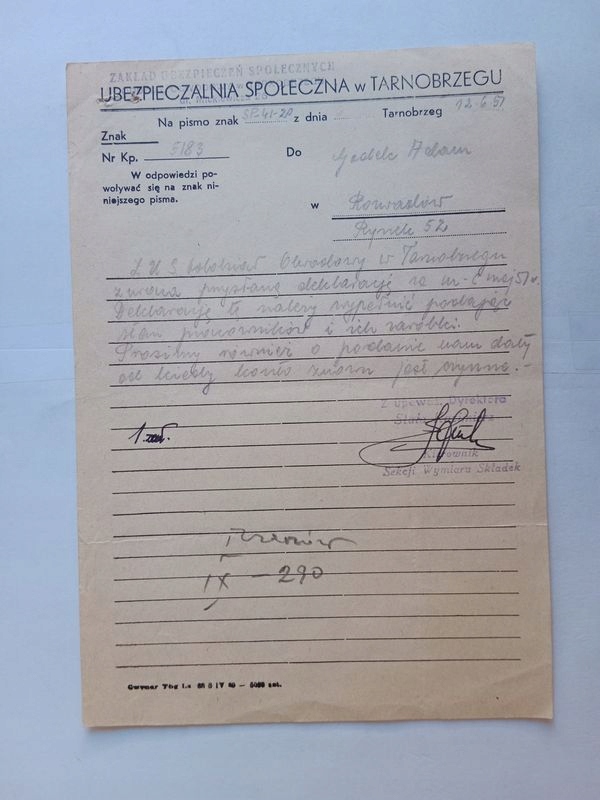 ZAKŁAD UBEZPIECZEŃ SPOŁECZNYCH
UBEZPIECZALNIA SPOŁECZNA w TARNOBRZEGU
Na pismo znak SP-41-20 z dnia Tarnobrzeg 12.6.51
Znak
Nr Kp. 5183
Do Adam
W odpowiedzi po-
woływać się na znak ni-
niejszego pisma.
w Rozwadów
Rynek 52
Z U S Obwodowy w Tarnobrzegu
zwraca przysłaną deklarację za m-c maj 51 r.
Deklarację tę należy wypełnić podając
stan pracowników i ich zarobki.
Prosimy również o podanie nam daty
od kiedy konto jest czynne.-
Z upoważ. Dyrektora
1
Kierownik
Sekcji Wymiaru Składek
Rzeszów
IX - 290